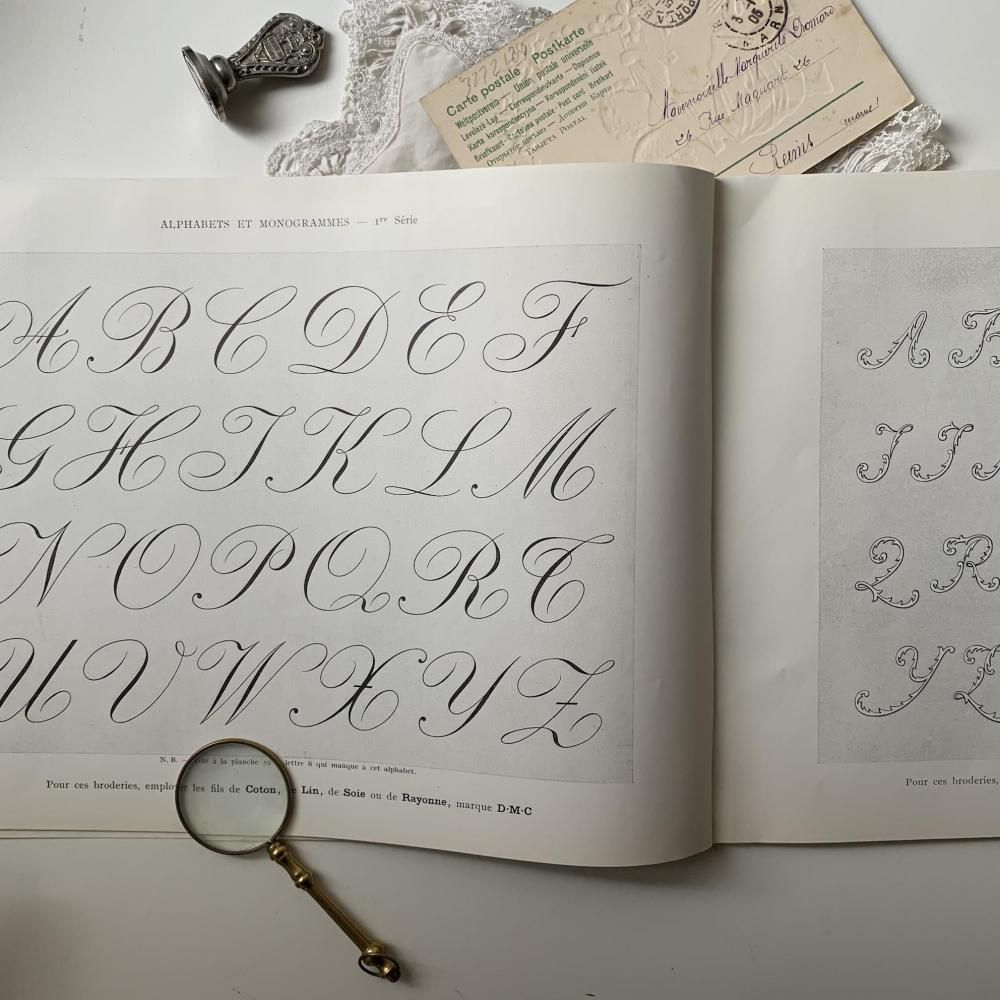 3272109
Carte postale Postkarte
Weltpostverein — Union postale universelle
Levelező Lap — Correspondenzkarte — Dopisnice
Karta korespondencyjna — Korespondenční lístek
Briefkaart — Cartolina postale — Post card — Brefkort
Открытое письмо — Дописна Карта
Tarjeta Postal
Mademoiselle Marguerite
26 Rue Maquart 26
Reims Marne
ALPHABETS ET MONOGRAMMES — 1re Série
A B C D E F
G H I K L M
N O P Q R T
U V W X Y Z
N. B. — Voir à la planche 59 lettre S qui manque à cet alphabet.
Pour ces broderies, employer les fils de Coton, de Lin, de Soie ou de Rayonne, marque D·M·C
A B
I J
Q R
Y Z
Pour ces broderies,